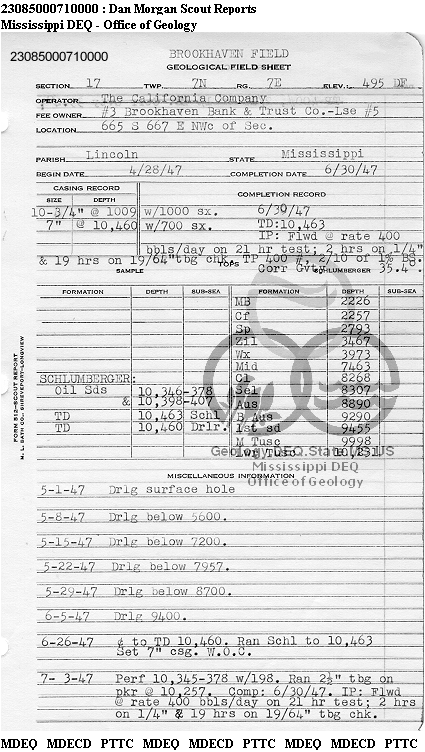 23085000710000 : Dan Morgan Scout Reports
Mississippi DEQ - Office of Geology
23085000710000
BROOKHAVEN FIELD
GEOLOGICAL FIELD SHEET
SECTION 17 TWP. 7N RG. 7E ELEV.: 495 DF
OPERATOR The California Company
FEE OWNER #3 Brookhaven Bank & Trust Co.-Lse #5
LOCATION 665 S 667 E NWc of Sec.
PARISH Lincoln STATE Mississippi
BEGIN DATE 4/28/47 COMPLETION DATE 6/30/47
CASING RECORD COMPLETION RECORD
SIZE DEPTH
10-3/4" @ 1009 w/1000 sx. 6/30/47
7" @ 10,460 w/700 sx. TD:10,463
IP: Flwd @ rate 400
bbls/day on 21 hr test; 2 hrs on 1/4"
& 19 hrs on 19/64"tbg chk. TP 400 #, 2/10 of 1% BS.
SAMPLE TOPS Corr Gvty SCHLUMBERGER 35.4°.
FORMATION DEPTH SUB-SEA FORMATION DEPTH SUB-SEA
MB 2226
Cf 2257
Sp 2793
Zil 3467
Wx 3973
Mid 7463
SCHLUMBERGER: Cl 8268
Oil Sds 10,346-378 Sel 8307
& 10,398-407 Aus 8890
TD 10,463 Schl B Aus 9290
TD 10,460 Drlr. 1st sd 9455
M Tusc 9998
Lwr Tusc 10,231
Geology.DEQ.State.MS.US
Mississippi DEQ
Office of Geology
FORM 512-SCOUT REPORT
M. L. BATH CO., SHREVEPORT-LONGVIEW
MISCELLANEOUS INFORMATION
5-1-47 Drlg surface hole
5-8-47 Drlg below 5600.
5-15-47 Drlg below 7200.
5-22-47 Drlg below 7957.
5-29-47 Drlg below 8700.
6-5-47 Drlg 9400.
6-26-47 ¢ to TD 10,460. Ran Schl to 10,463
Set 7" csg. W.O.C.
7- 3-47 Perf 10,345-378 w/198. Ran 2½" tbg on
pkr @ 10,257. Comp: 6/30/47. IP: Flwd
@ rate 400 bbls/day on 21 hr test; 2 hrs
on 1/4" & 19 hrs on 19/64" tbg chk.
MDEQ MDECD PTTC MDEQ MDECD PTTC MDEQ MDECD PTTC